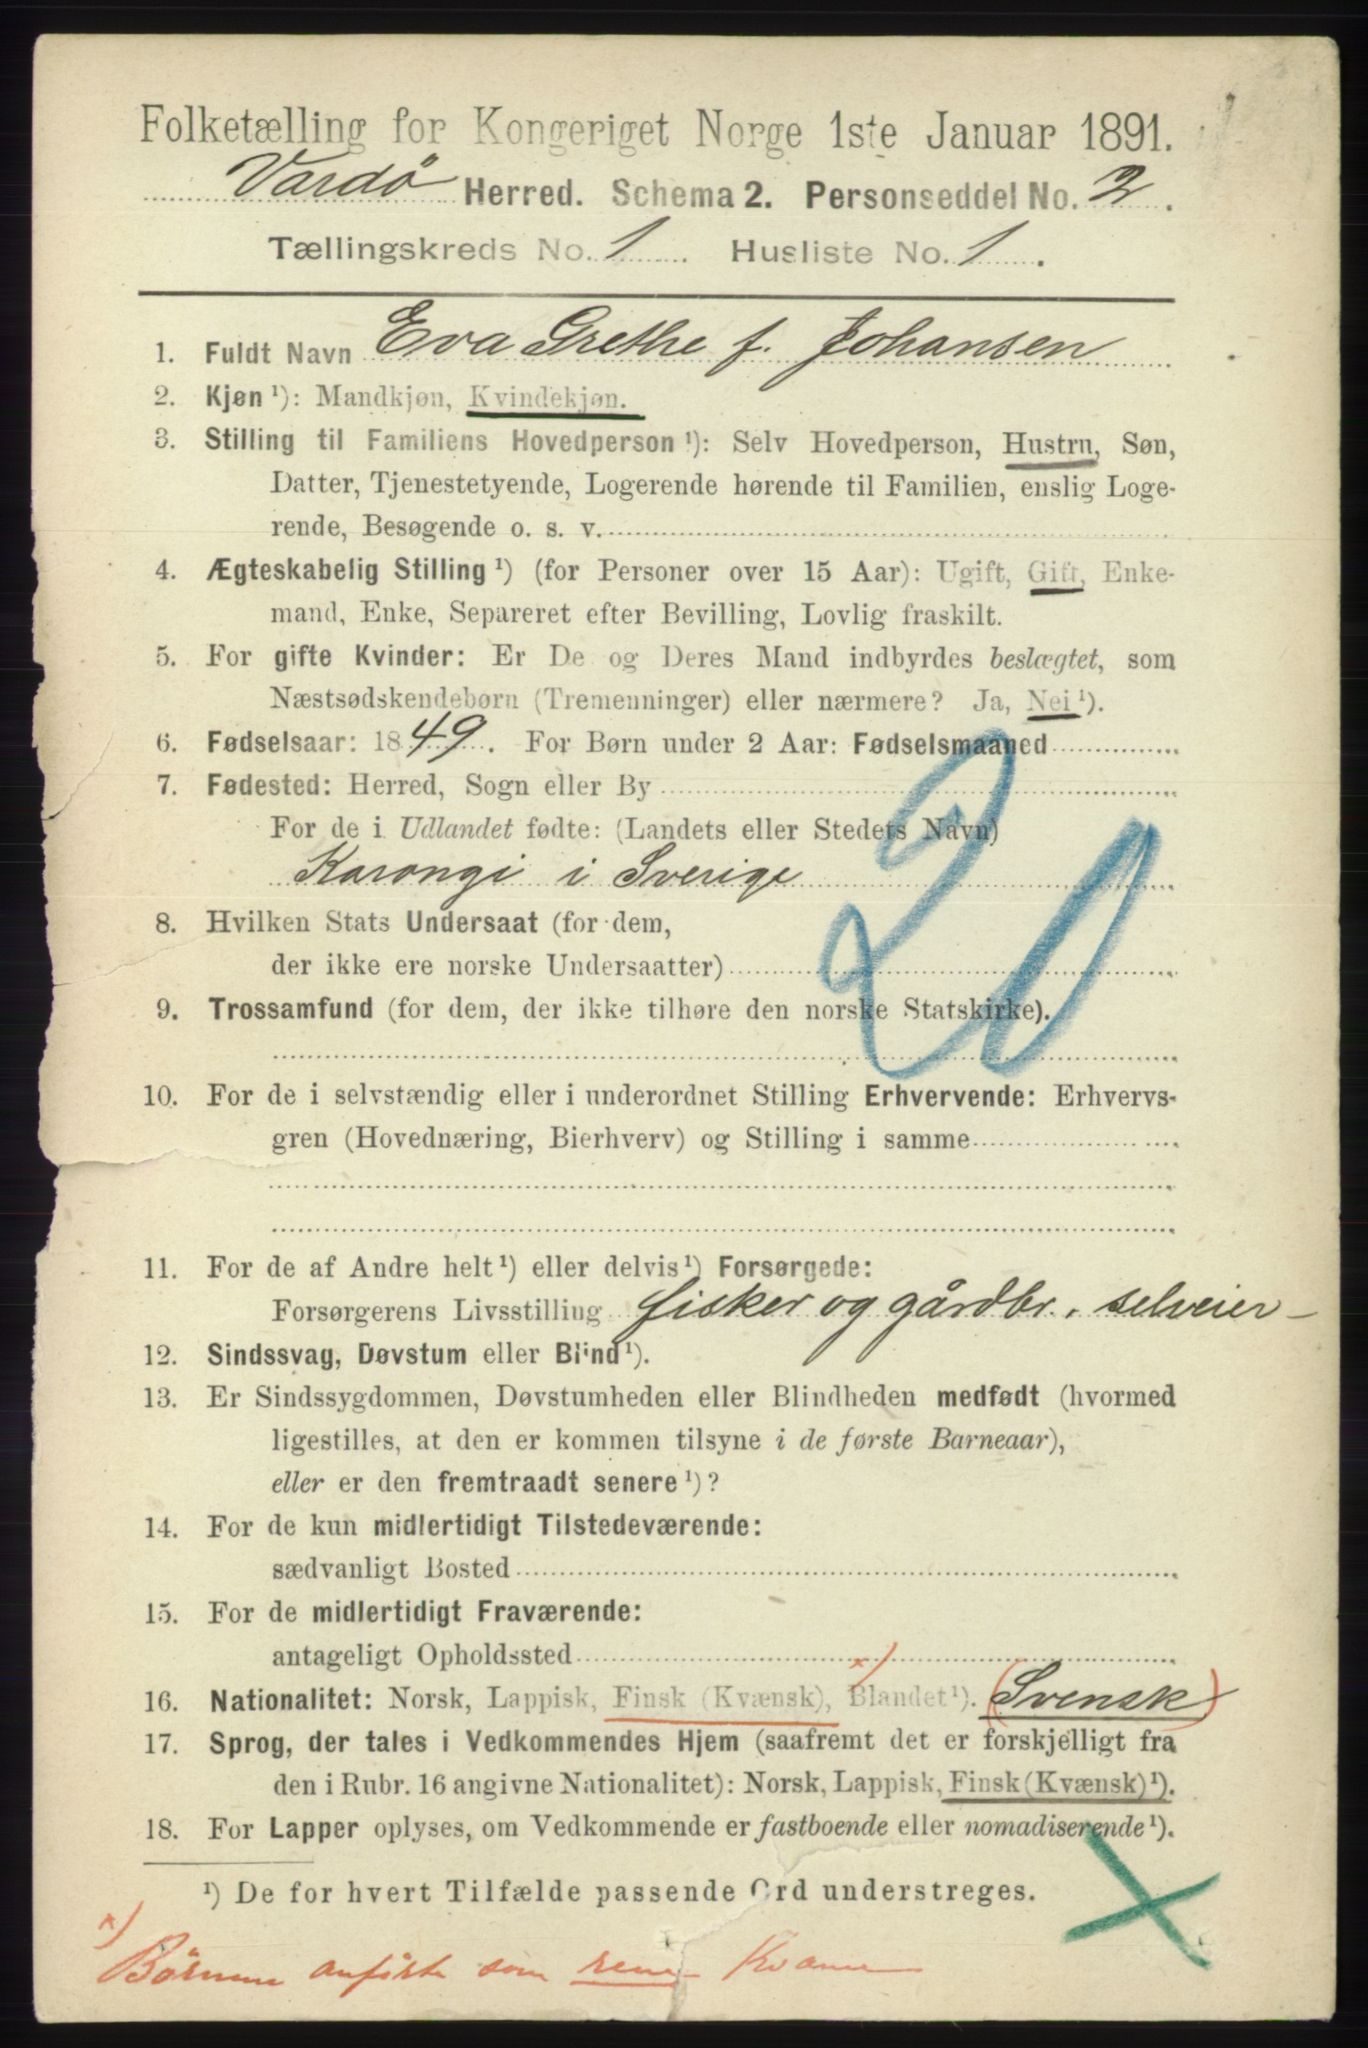 Folketælling for Kongeriget Norge 1ste Januar 1891.
Vardö Herred. Schema 2. Personseddel No. 2.
Tællingskreds No. 1. Husliste No. 1.
1. Fuldt Navn Eva Grethe f. Johansen
2. Kjøn ¹): Mandkjøn, Kvindekjøn.
3. Stilling til Familiens Hovedperson ¹): Selv Hovedperson, Hustru, Søn,
Datter, Tjenestetyende, Logerende hørende til Familien, enslig Loge-
rende, Besøgende o. s. v.
4. Ægteskabelig Stilling ¹) (for Personer over 15 Aar): Ugift, Gift, Enke-
mand, Enke, Separeret efter Bevilling, Lovlig fraskilt.
5. For gifte Kvinder: Er De og Deres Mand indbyrdes beslægtet, som
Næstsødskendebørn (Tremenninger) eller nærmere? Ja, Nei ¹).
6. Fødselsaar: 1849. For Børn under 2 Aar: Fødselsmaaned
7. Fødested: Herred, Sogn eller By
For de i Udlandet fødte: (Landets eller Stedets Navn)
Karongi i Sverige
20
8. Hvilken Stats Undersaat (for dem,
der ikke ere norske Undersaatter)
9. Trossamfund (for dem, der ikke tilhøre den norske Statskirke).
10. For de i selvstændig eller i underordnet Stilling Erhvervende: Erhvervs-
gren (Hovednæring, Bierhverv) og Stilling i samme
11. For de af Andre helt ¹) eller delvis ¹) Forsørgede:
Forsørgerens Livsstilling fisker og gårdbr. selveier
12. Sindssvag, Døvstum eller Blind ¹).
13. Er Sindssygdommen, Døvstumheden eller Blindheden medfødt (hvormed
ligestilles, at den er kommen tilsyne i de første Barneaar),
eller er den fremtraadt senere ¹)?
14. For de kun midlertidigt Tilstedeværende:
sædvanligt Bosted
15. For de midlertidigt Fraværende:
antageligt Opholdssted
16. Nationalitet: Norsk, Lappisk, Finsk (Kvænsk), Blandet ¹). (Svensk) ×)
17. Sprog, der tales i Vedkommendes Hjem (saafremt det er forskjelligt fra
den i Rubr. 16 angivne Nationalitet): Norsk, Lappisk, Finsk (Kvænsk) ¹).
18. For Lapper oplyses, om Vedkommende er fastboende eller nomadiserende ¹).
¹) De for hvert Tilfælde passende Ord understreges.
×) Børnene anførte som rene Kvæner